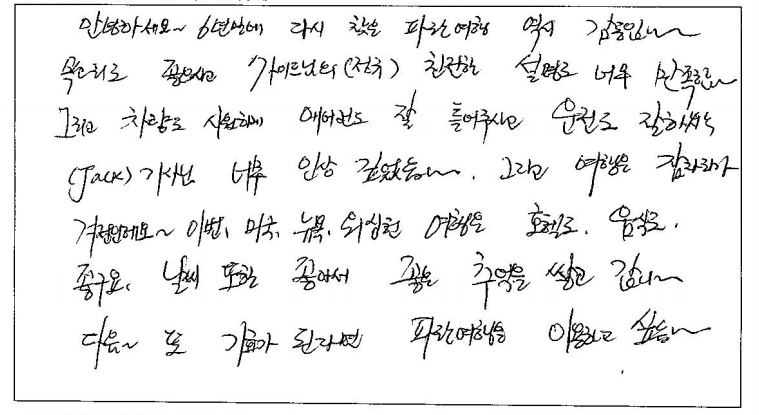 안녕하세요~ 6년만에 다시 찾은 파란여행 역시 감동입니다
목소리도 좋으시고 가이드님의 (정국) 친절한 설명도 너무 만족하고
그리고 차량도 시원하게 에어컨도 잘 틀어주시고 운전도 잘하시는
(Jack) 기사님 너무 인상 깊었음~. 그리고 여행은
이번, 미국, 뉴욕, 워싱턴 여행은 호텔도, 음식도,
좋구요, 날씨 또한 좋아서 좋은 추억을 쌓고 갑니다
다음~ 또 기회가 된다면 파란여행을 이용하고 싶음~